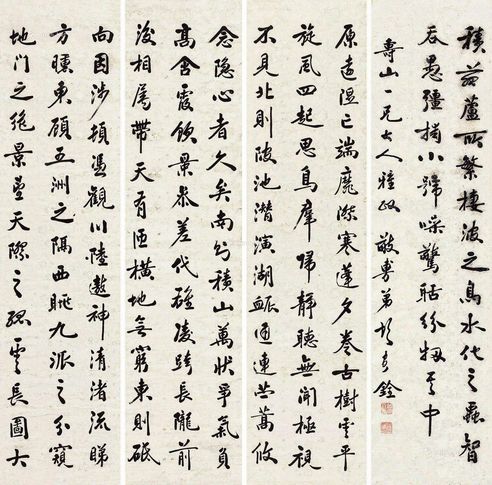 向因涉頓憑觀川陸遨神清渚流睇
方曛東顧五洲之隔西眺九派之分窺
地門之絕景望天際之孤雲長圖大
念隱心者久矣南則積山萬狀爭氣負
高含霞飲景參差代雄凌跨長隴前
後相屬帶天有匝橫地無窮東則砥
原遠隰亡端靡際寒蓬夕卷古樹雲平
旋風四起思鳥羣歸靜聽無聞極視
不見北則陂池潛演湖脈通連苧蒿攸
積菰蘆所繁棲波之鳥水化之蟲智
吞愚彊捕小號噪驚聒紛牣其中
壽山一兄大人雅政 敬專弟 銓